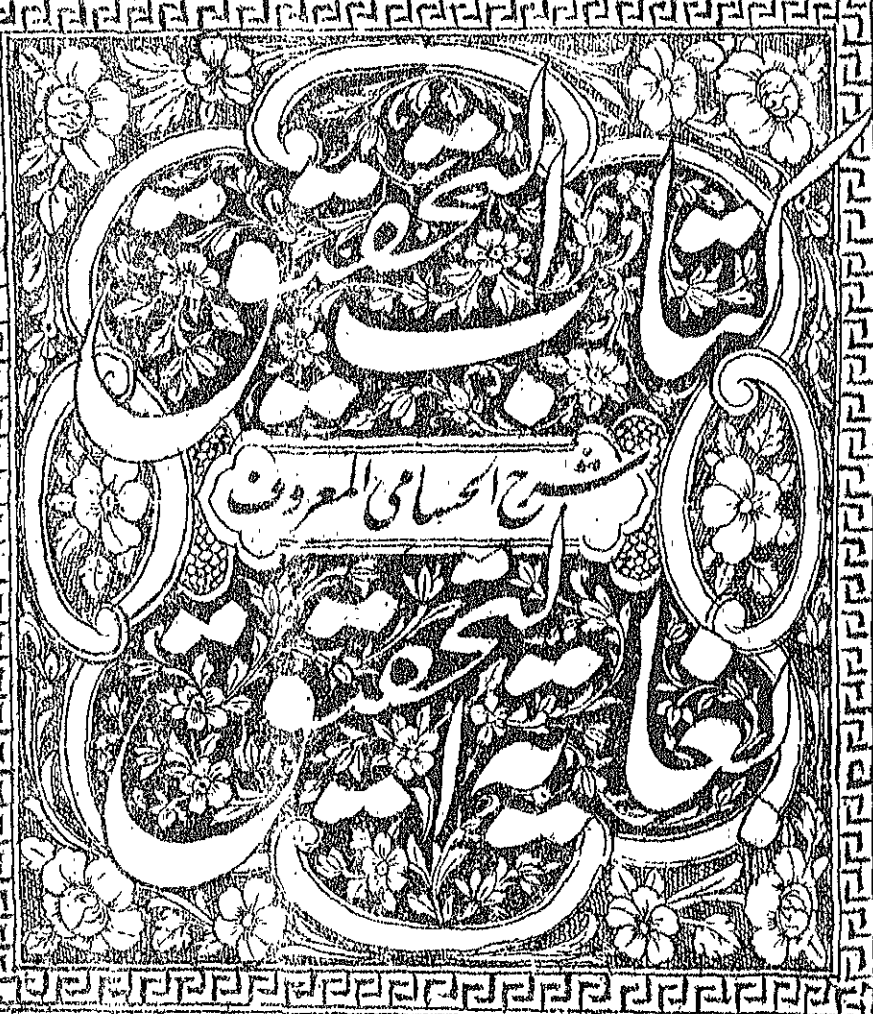 كتاب التحقيق
شرح الحسامي المعروف
بغاية التحقيق